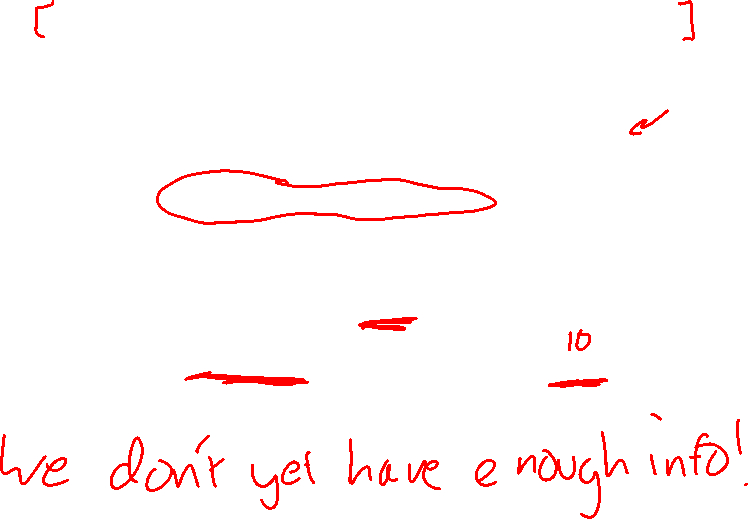 [ ]
10
We don't yet have enough info!